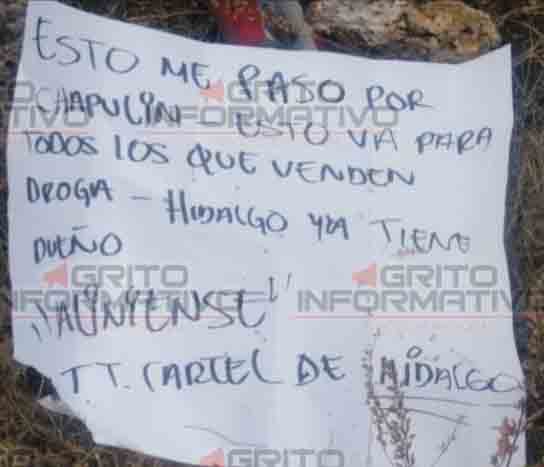 ESTO ME PASO POR
CHAPULIN ESTO VA PARA
TODOS LOS QUE VENDEN
DROGA - HIDALGO YA TIENE
DUEÑO
"ALINIENSE"
TT. CARTEL DE HIDALGO
GRITO
INFORMATIVO
GRITO
INFORMATIVO
GRITO
INFORMATIVO
GRITO
GRITO